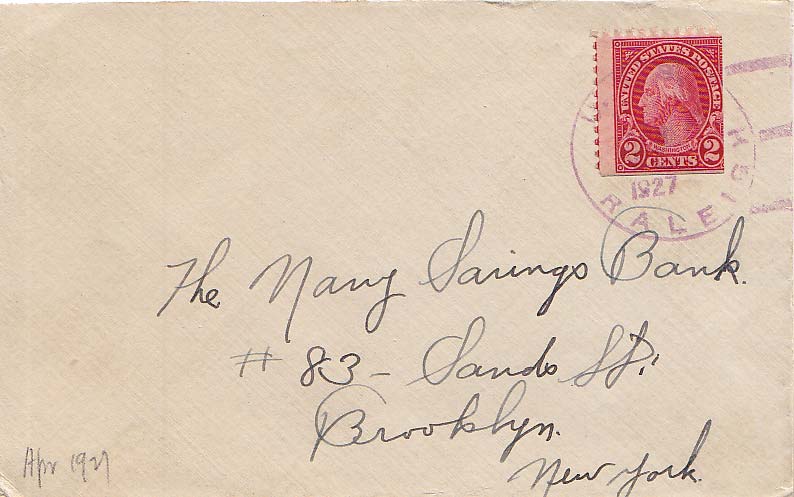 UNITED STATES POSTAGE
WASHINGTON
2 CENTS 2
1927
RALEIGH
The Navy Savings Bank.
# 83 - Sands St.
Brooklyn.
New York.
Apr 1927